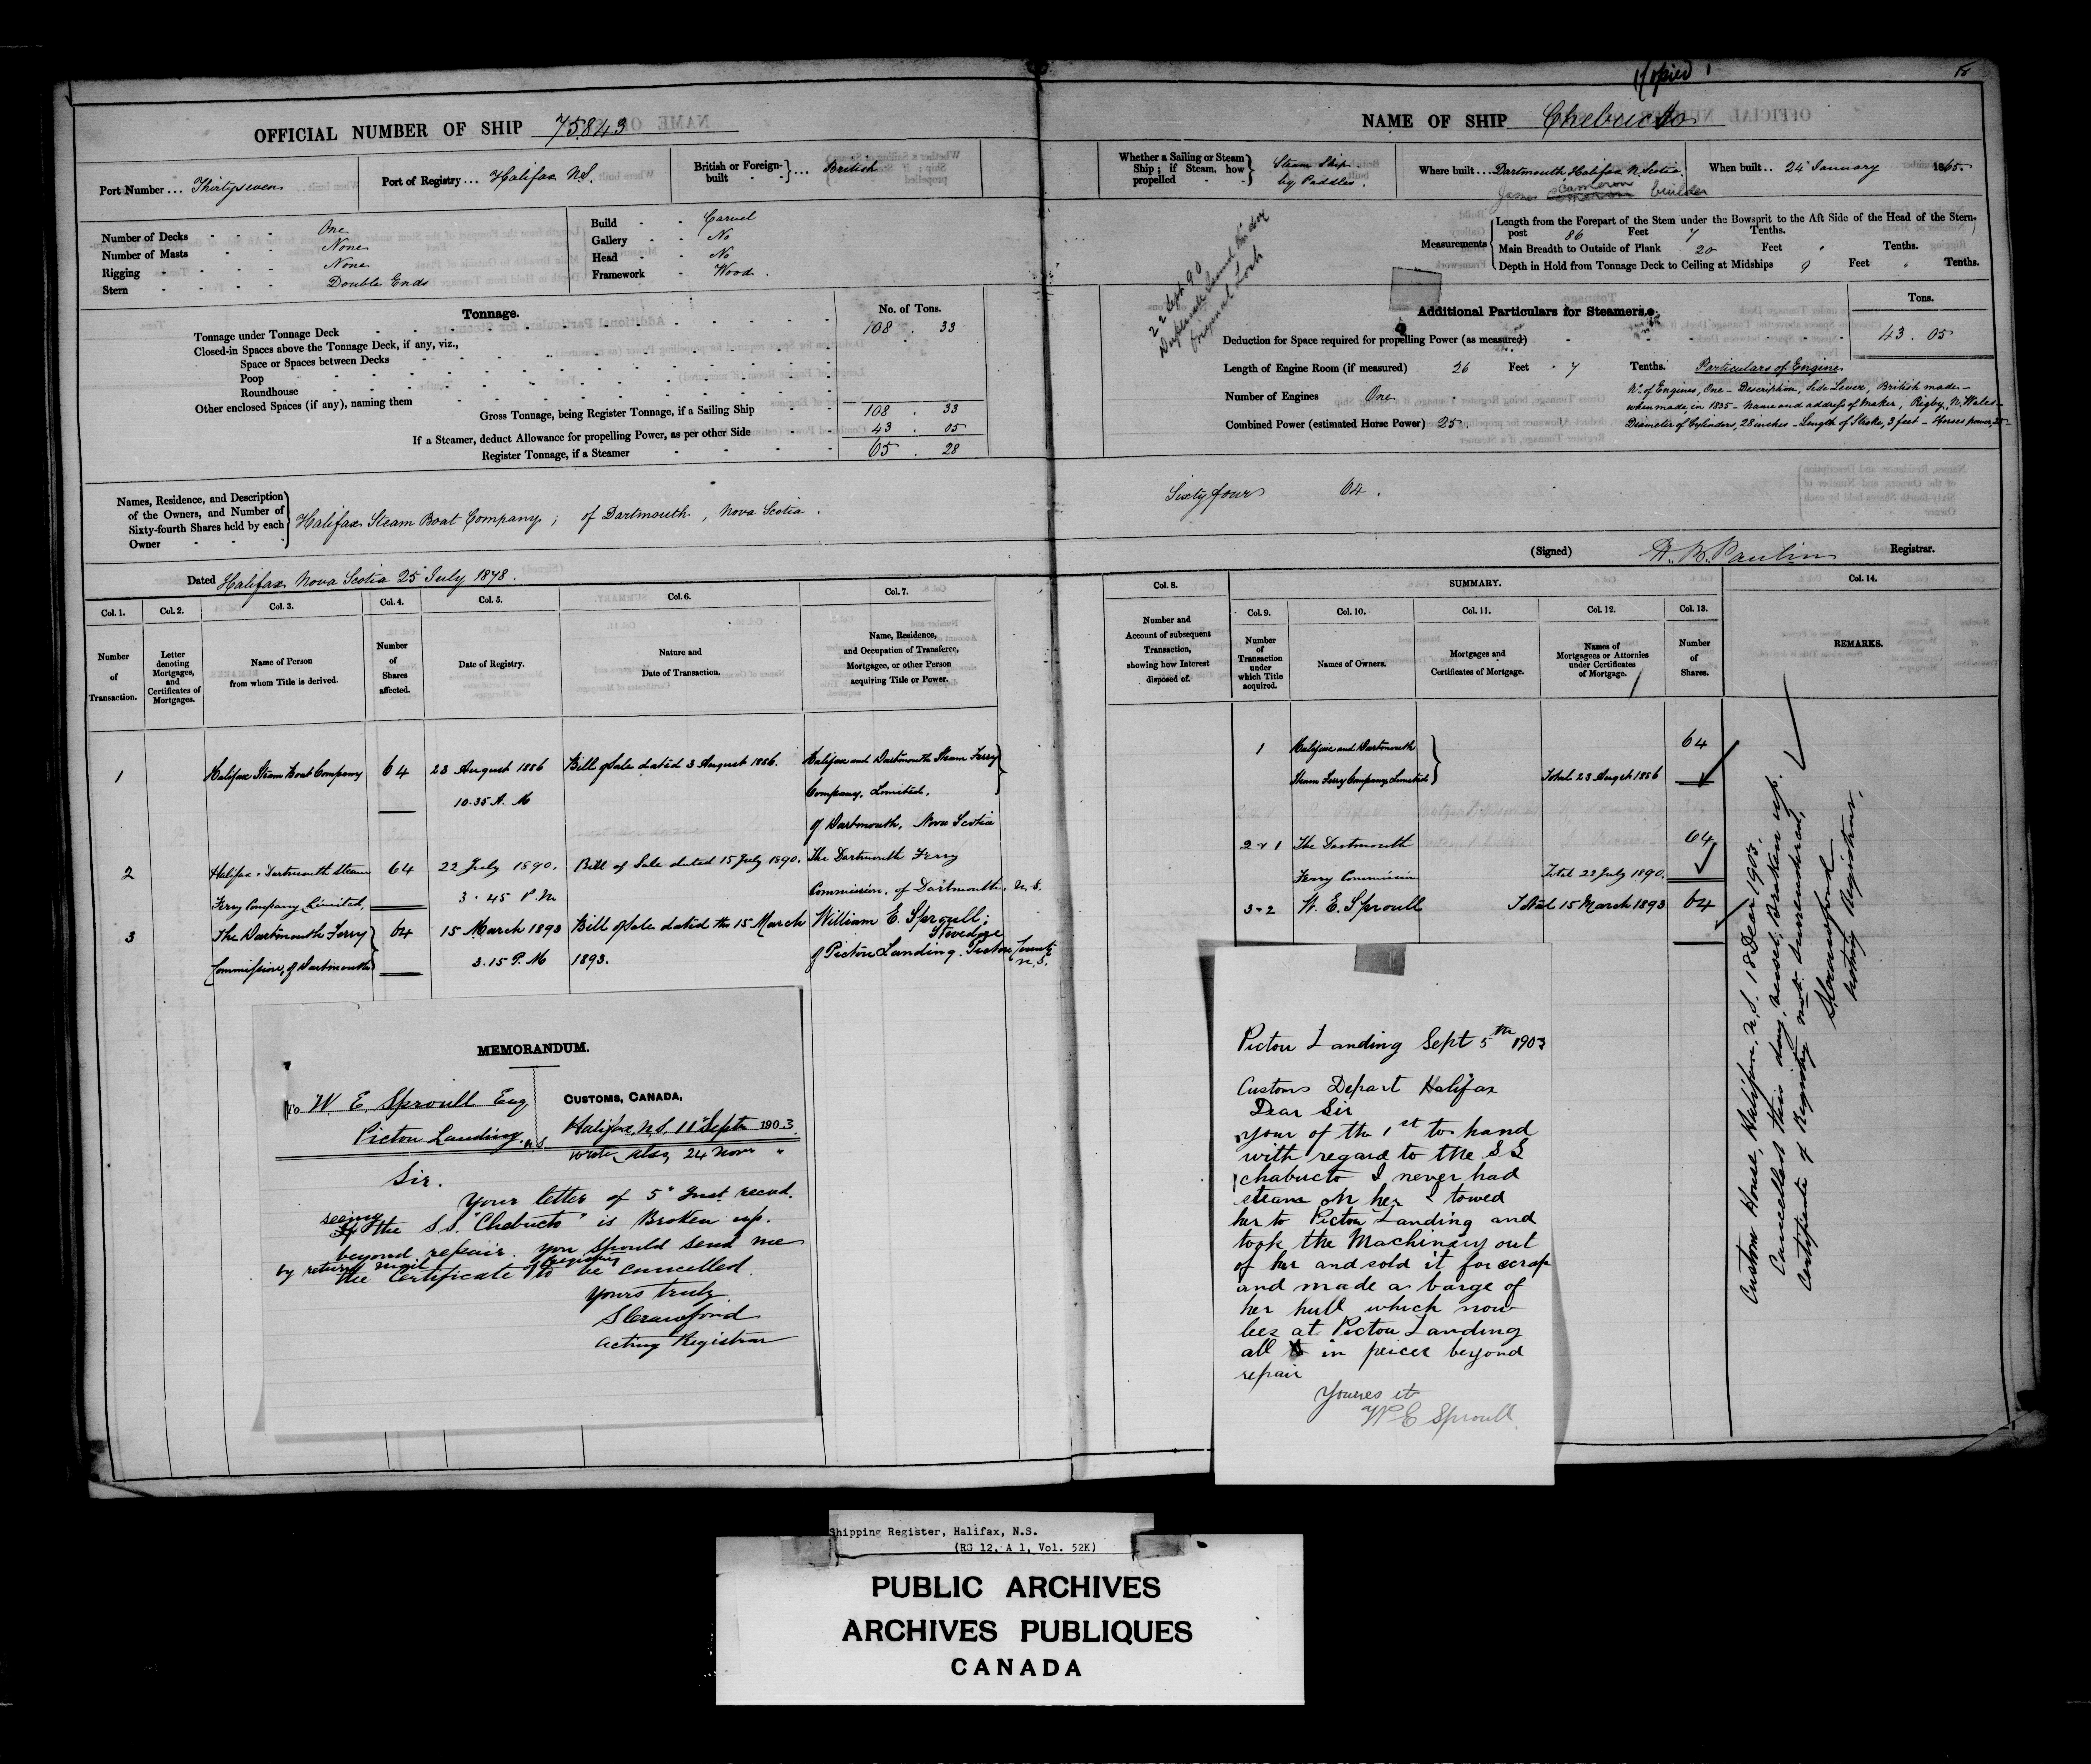 Copied
OFFICIAL NUMBER OF SHIP 75843
NAME OF SHIP Chebucto
Port Number ... Thirty seven
Port of Registry ... Halifax N.S.
British or Foreign-built ... British
Whether a Sailing or Steam Ship; if Steam, how propelled
Steam Ship by Paddles.
Where built ... Dartmouth, Halifax N. Scotia
When built .. 24 January 1865
James Cameron builder
Number of Decks One
Number of Masts None
Rigging None
Stern Double Ends
Build Carvel
Gallery No
Head No
Framework Wood.
Measurements
Length from the Forepart of the Stem under the Bowsprit to the Aft Side of the Head of the Stern-
post 86 Feet 7 Tenths.
Main Breadth to Outside of Plank 20 Feet " Tenths.
Depth in Hold from Tonnage Deck to Ceiling at Midships 9 Feet " Tenths.
22 Sept 90
Duplicate
Original Lost
Tonnage. No. of Tons.
Tonnage under Tonnage Deck 108 . 33
Closed-in Spaces above the Tonnage Deck, if any, viz.,
Space or Spaces between Decks
Poop
Roundhouse
Other enclosed Spaces (if any), naming them
Gross Tonnage, being Register Tonnage, if a Sailing Ship 108 . 33
If a Steamer, deduct Allowance for propelling Power, as per other Side 43 . 05
Register Tonnage, if a Steamer 65 . 28
Additional Particulars for Steamers. Tons.
Deduction for Space required for propelling Power (as measured) 43 . 05
Length of Engine Room (if measured) 26 Feet 7 Tenths.
Number of Engines One
Combined Power (estimated Horse Power) 25.
Particulars of Engine
No of Engines, One - Description, Side Lever, British made -
when made, in 1835 - Name and address of Maker, Rigby, N. Wales -
Diameter of Cylinders, 28 inches - Length of Stroke, 3 feet - Horses power, 25 -
Names, Residence, and Description
of the Owners, and Number of
Sixty-fourth Shares held by each
Owner
Halifax Steam Boat Company; of Dartmouth, Nova Scotia.
Sixty four 64.
(Signed) Paulin Registrar.
Dated Halifax Nova Scotia 25 July 1878.
Col. 1. Col. 2. Col. 3. Col. 4. Col. 5. Col. 6. Col. 7.
Number of Transaction.
Letter denoting Mortgages, and Certificates of Mortgages.
Name of Person from whom Title is derived.
Number of Shares affected.
Date of Registry.
Nature and Date of Transaction.
Name, Residence, and Occupation of Transferee, Mortgagee, or other Person acquiring Title or Power.
Col. 8. SUMMARY. Col. 14.
Col. 9. Col. 10. Col. 11. Col. 12. Col. 13.
Number and Account of subsequent Transaction, showing how Interest disposed of.
Number of Transaction under which Title acquired.
Names of Owners.
Mortgages and Certificates of Mortgage.
Names of Mortgagees or Attornies under Certificates of Mortgage.
Number of Shares.
REMARKS.
1 Halifax Steam Boat Company 64 23 August 1886 Bill of Sale dated 3 August 1886. Halifax and Dartmouth Steam Ferry
10.35 A. M Company, Limited.
of Dartmouth, Nova Scotia
2 Halifax & Dartmouth Steam 64 22 July 1890. Bill of Sale dated 15 July 1890. The Dartmouth Ferry
Ferry Company Limited, 3.45 P.M Commission, of Dartmouth, N.S.
3 The Dartmouth Ferry 64 15 March 1893 Bill of Sale dated the 15 March William E. Sproull; Stevedore
Commission, of Dartmouth 3.15 P.M 1893. of Pictou Landing. Pictou County N.S.
1 Halifax and Dartmouth 64
Steam Ferry Company Limited Total 23 August 1886
2 & 1 The Dartmouth 64
Ferry Commission Total 22 July 1890.
3-2 W. E. Sproull Total 15 March 1893 64
Custom House, Halifax, N.S. 18 Decr 1903.
Cancelled this day, vessel broken up.
Certificate of Registry not surrendered,
S. Crawford
Acting Registrar.
MEMORANDUM.
To W. E. Sproull Esq
Pictou Landing. N.S.
CUSTOMS, CANADA,
Halifax, N.S. 11 Septr 1903.
wrote also 24 Novr "
Sir.
Your letter of 5" Inst. recvd.
seeing the S.S. "Chebucto" is Broken up.
beyond repair. you should send me
by return mail the Certificate of Registry to be cancelled.
Yours truly
S Crawford
Acting Registrar
Pictou Landing Sept 5th 1903
Customs Depart Halifax
Dear Sir
your of the 1st to hand
with regard to the SS
chabucto I never had
steam on her I towed
her to Pictou Landing and
took the Machinary out
of her and sold it for scrap
and made a barge of
her hull which now
lies at Pictou Landing
all in peices beyond
repair
Youres et
W E Sproull
Shipping Register, Halifax, N.S.
(RG 12, A 1, Vol. 52K)
PUBLIC ARCHIVES
ARCHIVES PUBLIQUES
CANADA